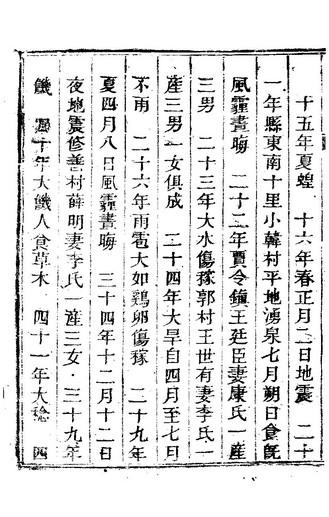 十五年夏蝗　十六年春正月二日地震　二十
一年縣東南十里小韓村平地湧泉七月朔日食旣
風霾晝晦　二十二年賈令鎮王廷臣妻康氏一產
三男　二十三年大水傷稼郭村王世有妻李氏一
產三男一女俱成　二十四年大旱自四月至七日
不雨　二十六年雨雹大如鷄卵傷稼　二十九年
夏四月八日風霾晝晦　三十四年十二月十二日
夜地震修善村薛明妻李氏一產三女・三十九年
饑　四十年大饑人食草木　四十一年大稔　四